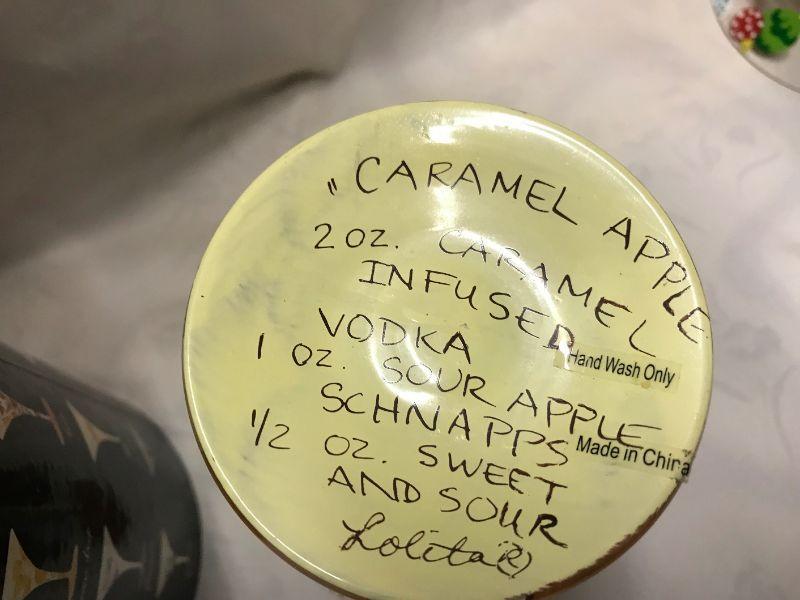 "CARAMEL APPLE
2 OZ. CARAMEL
INFUSED
VODKA
1 OZ. SOUR APPLE
SCHNAPPS
1/2 OZ. SWEET
AND SOUR
Lolita®
Hand Wash Only
Made in China